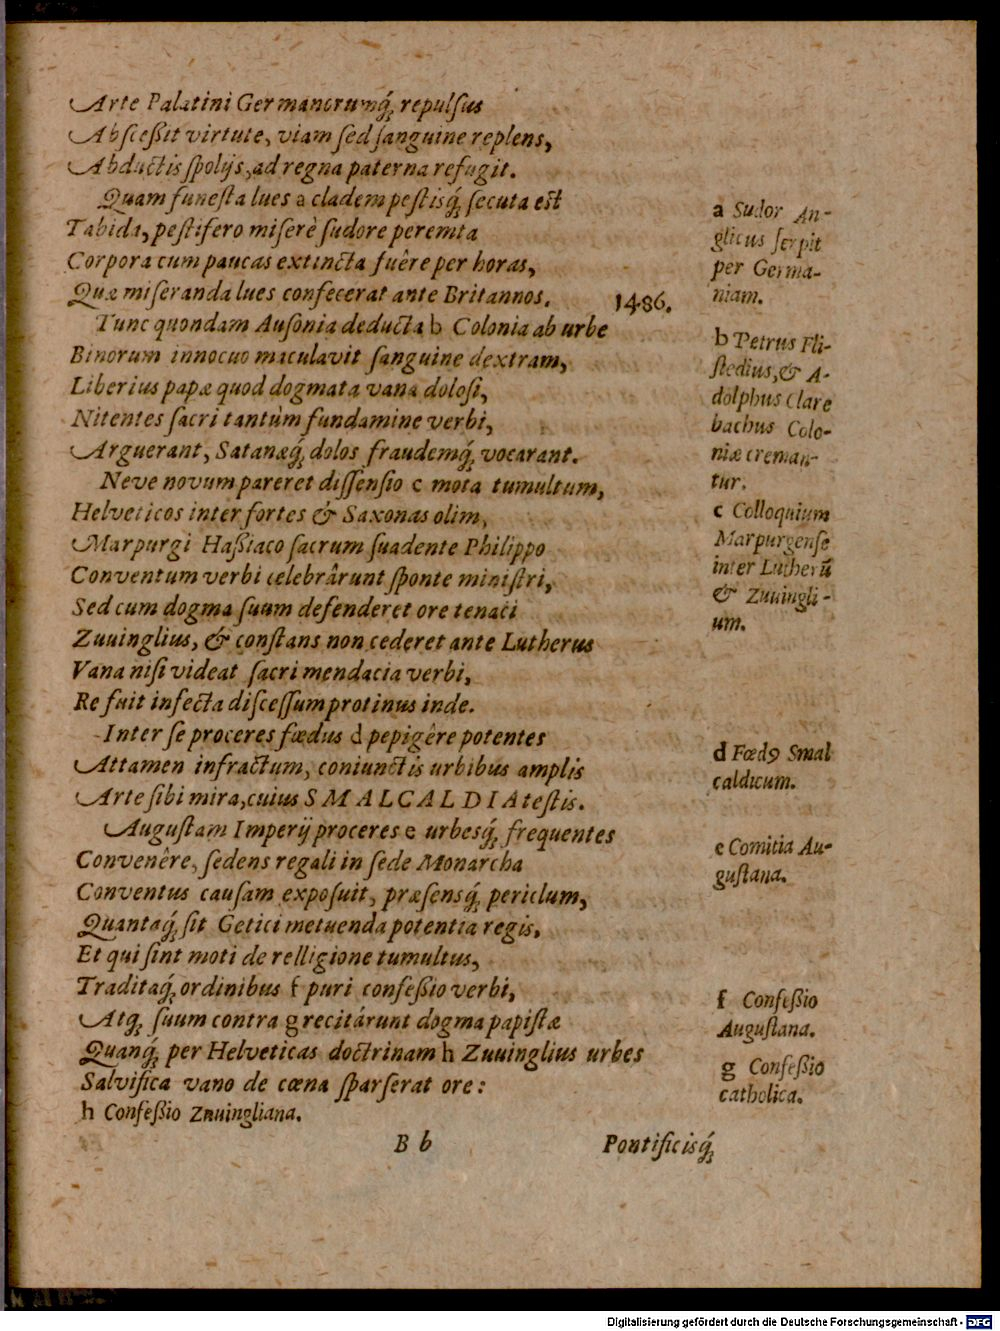 Arte Palatini Germanorumq́; repulſus
Abſceßit virtute, viam ſed ſanguine replens,
Abductis ſpolijs, ad regna paterna refugit.
Quam funeſta lues a cladem peſtisq́; ſecuta eſt
Tabida, peſtifero miſerè ſudore peremta
Corpora cum paucas extincta fuêre per horas,
Quæ miſeranda lues confecerat ante Britannos. 1486.
Tunc quondam Auſonia deducta b Colonia ab urbe
Binorum innocuo maculavit ſanguine dextram,
Liberius papæ quod dogmata vana doloſi,
Nitentes ſacri tantùm fundamine verbi,
Arguerant, Satanæq́; dolos fraudemq́; vocarant.
Neve novum pareret diſſenſio c mota tumultum,
Helveticos inter fortes & Saxonas olim,
Marpurgi Haßiaco ſacrum ſuadente Philippo
Conventum verbi celebrârunt ſponte miniſtri,
Sed cum dogma ſuum defenderet ore tenaci
Zuuinglius, & conſtans non cederet ante Lutherus
Vana niſi videat ſacri mendacia verbi,
Re fuit infecta diſceſſum protinus inde.
Inter ſe proceres fœdus d pepigêre potentes
Attamen infractum, coniunctis urbibus amplis
Arte ſibi mira, cuius SMALCALDIA teſtis.
Auguſtam Imperij proceres e urbesq́; frequentes
Convenêre, ſedens regali in ſede Monarcha
Conventus cauſam expoſuit, præſensq́; periclum,
Quantaq́; ſit Getici metuenda potentia regis,
Et qui ſint moti de relligione tumultus,
Traditaq́; ordinibus f puri confeßio verbi,
Atq; ſuum contra g recitârunt dogma papiſtæ
Quanq́; per Helveticas doctrinam h Zuuinglius urbes
Salvifica vano de cœna ſparſerat ore:
h Confeßio Zuuingliana.
B b Pontificisq́;
a Sudor An-
glicus ſerpit
per Germa-
niam.
b Petrus Fli-
ſtedius, & A-
dolphus Clare
bachus Colo-
niæ creman-
tur.
c Colloquium
Marpurgenſe
inter Lutherũ
& Zuuingli-
um.
d Fœdꝰ Smal
caldicum.
e Comitia Au-
guſtana.
f Confeßio
Auguſtana.
g Confeßio
catholica.
Digitalisierung gefördert durch die Deutsche Forschungsgemeinschaft - DFG